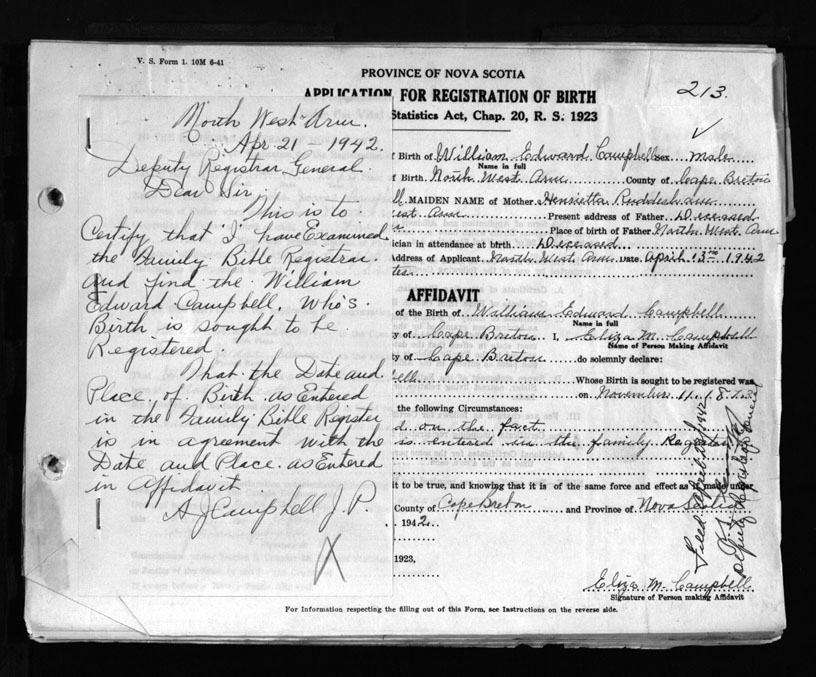 V. S. Form 1. 10M 6-41
PROVINCE OF NOVA SCOTIA
APPLICATION FOR REGISTRATION OF BIRTH
213.
Statistics Act, Chap. 20, R. S. 1923
North West Arm.
Apr. 21 - 1942.
Deputy Registrar General.
Dear Sir.
This is to
Certify that I have Examined
the Family Bible Registrar
and find the William
Edward Campbell, Who's
Birth is sought to be
Registered.
That the Date and
Place of Birth as Entered
in the Family Bible Register
is in agreement with the
Date and Place as Entered
in Affidavit.
A J Campbell J. P.
X
f Birth of William Edward Campbell sex male
Name in full
f Birth North West Arm County of Cape Breton
MAIDEN NAME of Mother Henrietta
est Arm Present address of Father Deceased
Place of birth of Father North West Arm
ician in attendance at birth Deceased
ddress of Applicant North West Arm Date April 1942
AFFIDAVIT
of the Birth of William Edward Campbell
Name in full
y of Cape Breton I, Eliza M. Campbell
Name of Person Making Affidavit
ty of Cape Breton do solemnly declare:
Whose Birth is sought to be registered was
on November
the following Circumstances:
d on the fact
is entered in the family Register
it to be true, and knowing that it is of the same force and effect as if made under
County of Cape Breton and Province of Nova Scotia
1942.
1923,
Eliza M. Campbell
Signature of Person making Affidavit
For Information respecting the filling out of this Form, see Instructions on the reverse side.
Filed April 1942
Deputy Registrar General